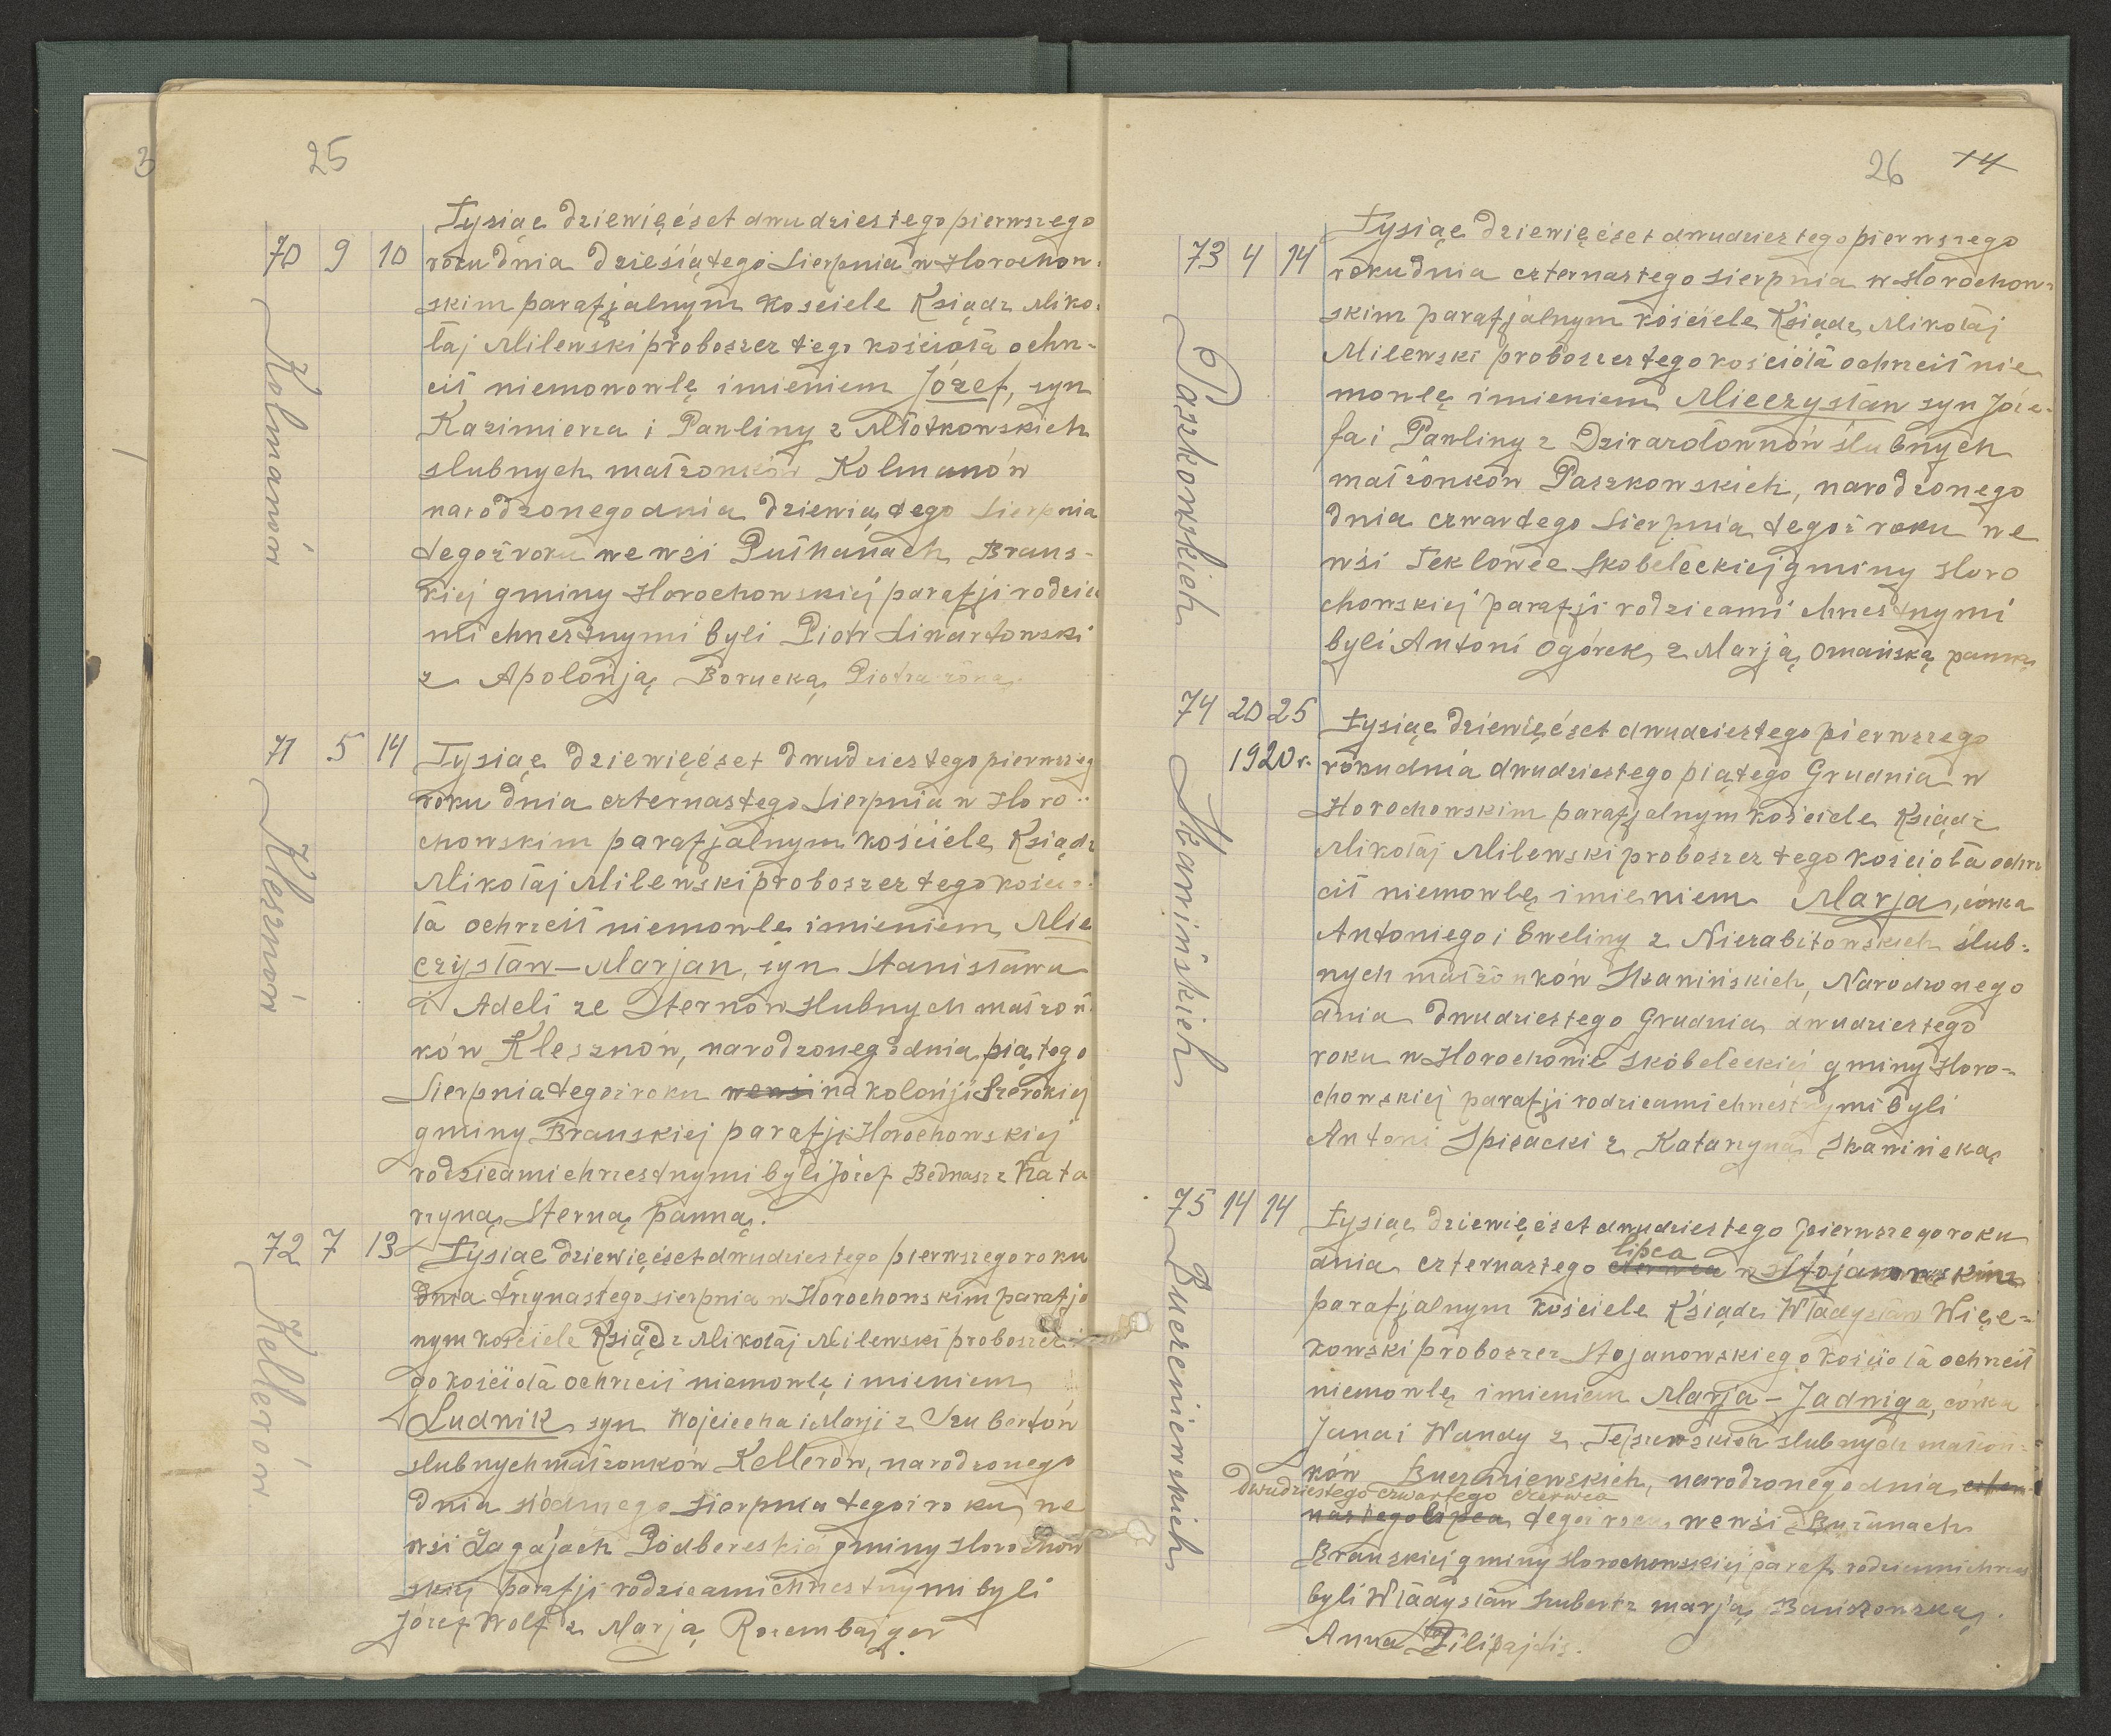 3
25
70 9 10
Kolmanów
Tysiąc dziewięćset dwudziestego pierwszego
roku dnia dziesiątego Sierpnia w Horochow-
skim parafjalnym Kosciele Ksiądz Miko-
łaj Milewski proboszcz tego kościoła ochrz-
cił niemowlę imieniem Józef, syn
Kazimierza i Pauliny z Młotkowskich
slubnych małżonków Kolmanów
narodzonego dnia dziewiątego Sierpnia
tegoż roku we wsi Brans-
kiej gminy Horochowskiej parafji rodzica
mi chrzestnymi byli Piotr Liwartowski
z Apolonją Borucką Piotra żoną.
71 5 14
Klesznów
Tysiąc dziewięćset dwudziestego pierwszeg
roku dnia czternastego Sierpnia w Horo-
chowskim parafjalnym kościele Ksiądz
Mikołaj Milewski proboszcz tego kościo-
ła ochrzcił niemowle imieniem Mie
czysław-Marjan, syn Stanisława
i Adeli ze Sternów slubnych małżon-
ków Klesznów, narodzonego dnia piątego
Sierpnia tegoż roku we wsi na kolonji Szerokiej
gminy Branskiej parafji Horochowskiej
rodzicami chrzestnymi byli Józef Bednasz z Kata
rzyną Sterną panną.
72 7 13
Kellerów
Tysiąc dziewięćset dwudziestego pierwszego roku
dnia trzynastego sierpnia w Horochowskim parafja
nym kościele Ksiądz Mikołaj Milewski proboszcz
go kościoła ochrzcił niemowlę imieniem
Ludwik syn Wojciecha i Marji z Szubertów
slubnych małżonków Kellerów, narodzonego
dnia siódmego Sierpnia tegoż roku we
wsi Łagajach Podbereskiej gminy Horochow
skiej parafji rodzicami chrzestnymi byli
Józef Wolf z Marją Rozembajger.
26 14
73 4 14
Paszkowskich
Tysiąc dziewięćset dwudziestego pierwszego
roku dnia czternastego sierpnia w Horochow-
skim parafjalnym kościele Ksiądz Mikołaj
Milewski proboszcz tego kościoła ochrzcił nie
mowlę imieniem Mieczysław syn Józe-
fa i Pauliny z ślubnych
małżonków Paszkowskich, narodzonego
dnia czwartego Sierpnia tegoż roku we
wsi Teklówce Skobełeckiej gminy Horo
chowskiej parafji rodzicami chrzestnymi
byli Antoni Ogórek z Marją Omańską panną
74 20 25
1920 r.
Skawińskich
Tysiąc dziewięćset dwudziestego pierwszego
roku dnia dwudziestego piątego Grudnia w
Horochowskim parafjalnym kościele Ksiądz
Mikołaj Milewski proboszcz tego kościoła ochrz
cił niemowlę imieniem Marja, córka
Antoniego i Eweliny z Niezabitowskich ślub-
nych małżonków Skawińskich, Narodzonego
dnia dwudziestego Grudnia dwudziestego
roku w Horochowie Skobełeckiej gminy Horo-
chowskiej parafji rodzicami chrzestnymi byli
Antoni Spisacki z Katarzyną
75 14 14
Buczeniewskich
Tysiąc dziewięćset dwudziestego pierwszego roku
dnia czternastego lipca w Stojanowskim
parafjalnym kościele Ksiądz Władysław Więc-
kowski proboszcz Stojanowskiego kościoła ochrzcił
niemowlę imieniem Marja-Jadwiga, córka
Jana i Wandy z slubnych małżon-
ków Buczeniewskich, narodzonego dnia
dwudziestego czwartego czerwca
nastego lipca tegoż roku we wsi Bużanach
Branskiej gminy Horochowskiej paraf. rodzicami chrzes
byli Władysław Szubert z Marją
Anna Pilipajtis.